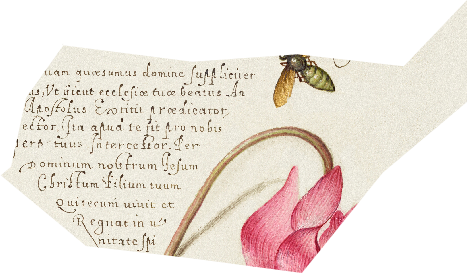 quæsumus domine suppliciter
Vt sicut ecclesiæ tuæ beatus An
Apostolus Extitit prædicator
ector, Ita apud te sit pro nobis
tuus Intercessor. Per
Dominum nostrum Iesum
Christum Filium tuum
Qui tecum viuit et
Regnat in
nitate spi